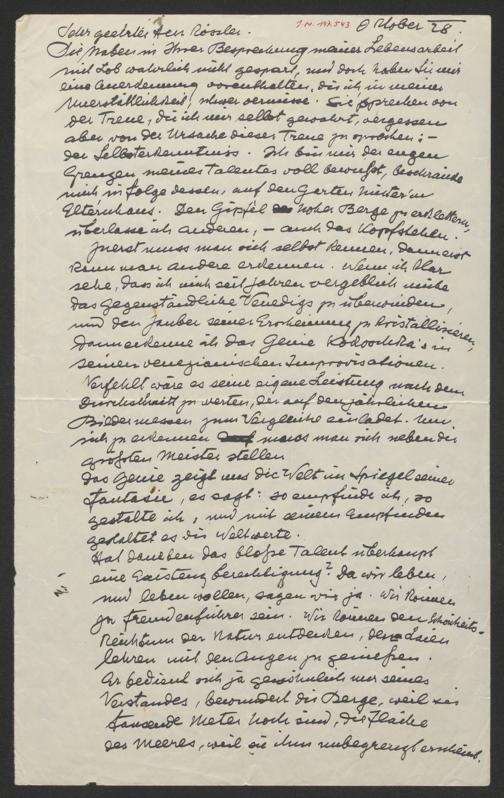 Sehr geehrter Herr Rössler.
I.N. 147.543
Oktober 28.
Sie haben in Ihrer Besprechung meiner Lebensarbeit
mit Lob wahrlich nicht gespart, und doch haben Sie mir
eine Anerkennung vorenthalten, die ich in meiner
Unersättlichkeit, schwer vermisse. Sie sprechen von
der Treue, die ich mir selbst gewahrt, vergessen
aber von der Ursache dieser Treue zu sprechen: –
der Selbsterkenntniss. Ich bin mir der engen
Grenzen meines Talentes voll bewußt, beschränke
mich in folge dessen, auf den Garten hinter'm
Elternhaus. Den Gipfel hoher Berge zu erklettern,
überlasse ich anderen, – auch das Kopfstehen.
Zuerst muss man sich selbst kennen, dann erst
kann man andere erkennen. Wenn ich klar
sehe, dass ich mich seit Jahren vergeblich mühe
das gegenständliche Venedigs zu überwinden,
und den Zauber seiner Erscheinung zu kristallisieren,
dann erkenne ich das Genie Kokoschka's in
seinen venezianischen Improvisationen.
Verfehlt wäre es seine eigene Leistung nach dem
Durchschnitt zu werten, der auf den jährlichen
Bildermessen zum Vergleiche einladet. Um
sich zu erkennen muss man sich neben die
größten Meister stellen
Das Genie zeigt uns die Welt im Spiegel seiner
Fantasie, es sagt: so empfinde ich, so
gestalte ich, und mit seinem Empfinden
gestaltet es die Weltwerte.
Hat daneben das bloße Talent überhaupt
eine Existenzberechtigung? Da wir leben,
und leben wollen, sagen wir ja. Wir können
zu Fremdenführer sein. Wir können den Schönheits-
Reichtum der Natur entdecken, den Laien
lehren mit den Augen zu genießen.
Er bedient sich ja gewöhnlich nur seines
Verstandes, bewundert die Berge, weil sie
tausende Meter hoch sind, die Fläche
des Meeres, weil sie ihm unbegrenzt erscheint.